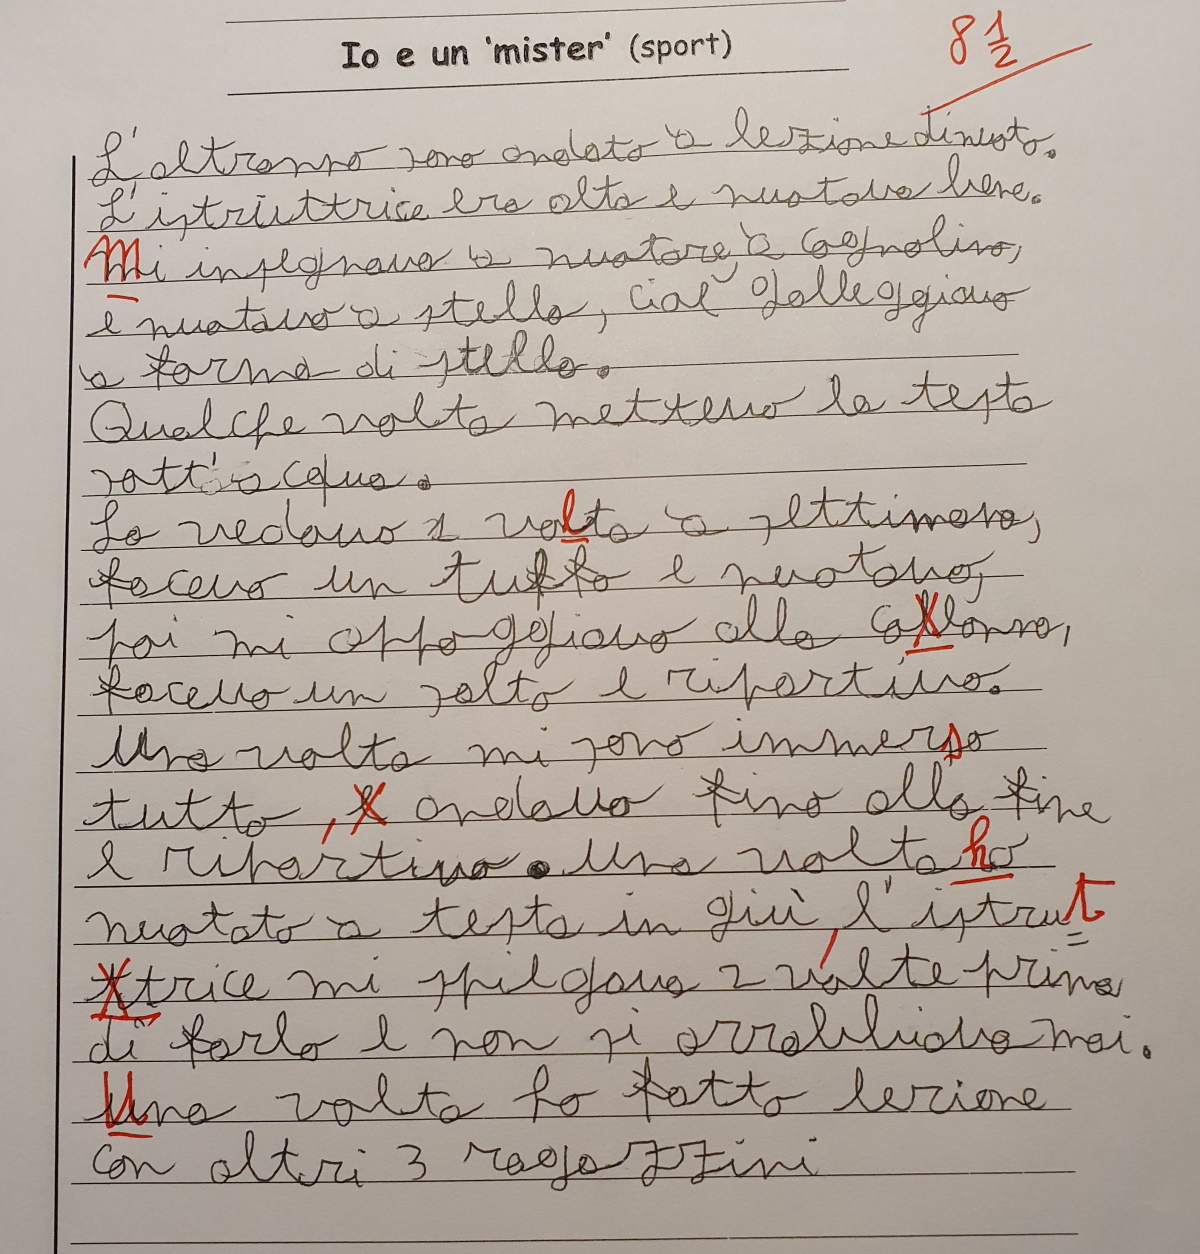 Io e un 'mister' (sport)
8 1/2
L'altranno sono andato a lezione di nuoto.
L'istruttrice era alta e nuotava bene.
Mi insegnava a nuotare a cagnolino,
e nuotavo a stella, cioè galleggiavo
a forma di stella.
Qualche volta mettevo la testa
sott'acqua.
La vedavo 1 volta a settimana,
facevo un tuffo e nuotavo,
poi mi appoggiavo alla collonna,
facevo un salto e ripartivo.
Una volta mi sono immerso
tutto, e andavo fino alla fine
e ripartivo. Una volta ho
nuotato a testa in giù, l'istrut
ttrice mi spilgava 2 volte prima
di farlo e non si arrabbiava mai.
Una volta ho fatto lezione
con altri 3 ragazzini